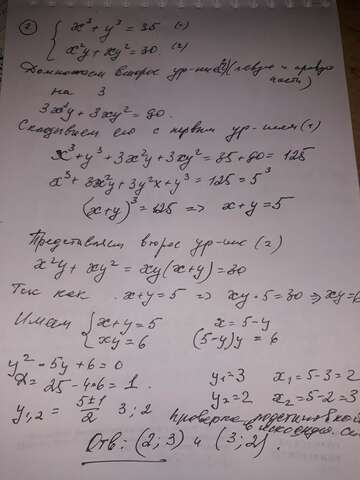 ② { x³ + y³ = 35 (1)
x²y + xy² = 30 (2)
Домножаем второе ур-ние (левую и правую части)
на 3
3x²y + 3xy² = 90.
Складываем его с первым ур-нием (1)
x³ + y³ + 3x²y + 3xy² = 35 + 90 = 125
x³ + 3x²y + 3y²x + y³ = 125 = 5³
(x+y)³ = 125 => x+y = 5
Представляем второе ур-ние (2)
x²y + xy² = xy(x+y) = 30
Так как x+y = 5 => xy·5 = 30 => xy = 6
Имеем { x+y = 5 x = 5-y
xy = 6 (5-y)y = 6
y² - 5y + 6 = 0
D = 25 - 4·6 = 1. y₁ = 3 x₁ = 5-3 = 2
y₂ = 2 x₂ = 5-2 = 3
y₁,₂ = 5±1/2 3; 2
Проверка подстановкой
в исходную
Отв: (2; 3) и (3; 2).